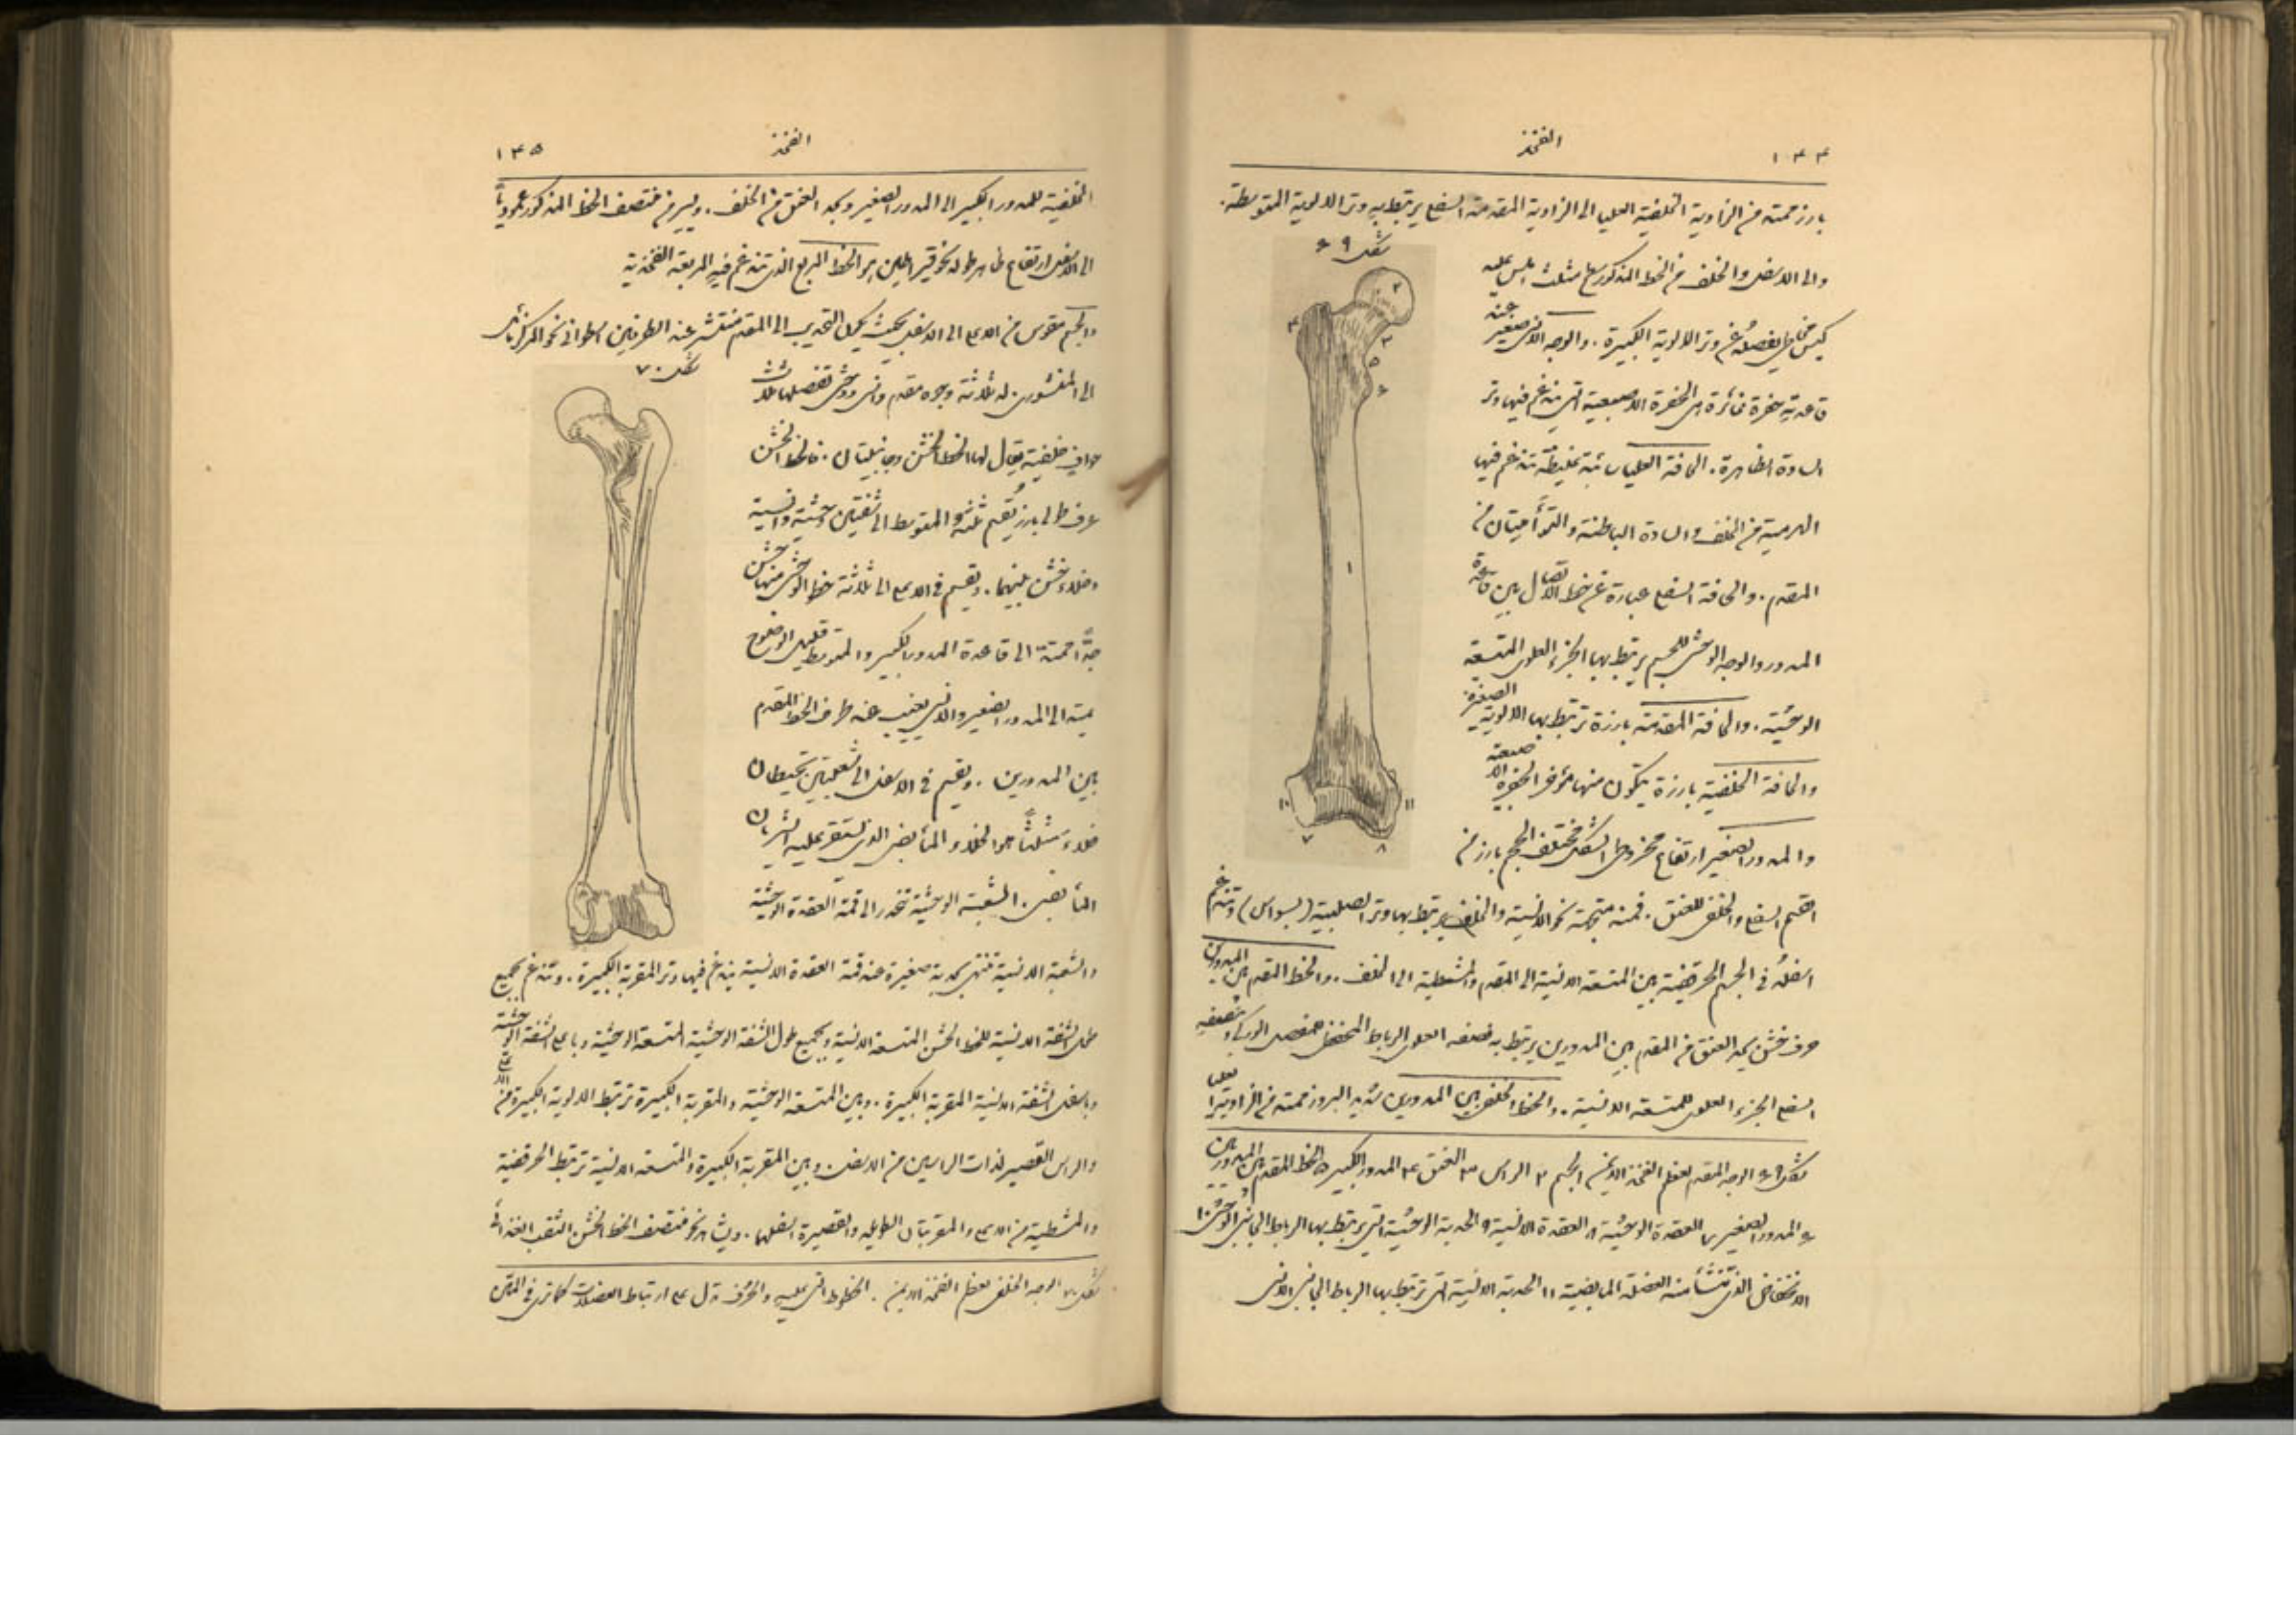 ١٣٤
الفخذ
بارز ممتد من الزاوية الخلفية العليا الى الزاوية المقدمة السفلى يرتبط به وتر الالوية المتوسطة.
شكل ٦٩
والى الاسفل والخلف من الخط المذكور سطح مثلث املس عليه
كيس مخاطي يفصله عن وتر الالوية الكبيرة. والوجه الانسي صغير عند
قاعدته حفرة غائرة هي الحفرة الاصبعية التي يندغم فيها وتر
السادة الظاهرة. الحافة العليا سائبة غليظة تندغم فيها
الهرمية من الخلف والسادة الباطنة والتوأميتان من
المقدم. والحافة السفلى عبارة عن خط الاتصال بين قاعدة
المدور والوجه الوحشي للجسم يرتبط بها الجزء العلوي للمتسعة
الوحشية. والحافة المقدمة بارزة ترتبط بها الالوية الصغيرة.
والحافة الخلفية بارزة يتكون منها مؤخر الحفرة الاصبعية
والمدور الصغير ارتفاع مخروطي الشكل مختلف الحجم بارز من
القسم السفلي والخلفي للعنق. قمته متجهة نحو الانسية والخلف يرتبط بها وتر الصلبية (بسواس) وتندغم
اسفله في الجسم الحرقفية بين المتسعة الانسية الى المقدم والمشطية الى الخلف. والخط المقدم بين المدورين
حرف خشن يحد العنق من المقدم بين المدورين يرتبط بنصفه العلوي الرباط المحفظي للمفصل الوركي وبنصفه
السفلي الجزء العلوي للمتسعة الانسية. والخط الخلفي بين المدورين شديد البروز ممتد من الزاوية العليا
شكل ٦٩ الوجه المقدم لعظم الفخذ الايمن ١ الجسم ٢ الراس ٣ العنق ٤ المدور الكبير ٥ الخط المقدم بين المدورين
٦ المدور الصغير ٧ العقدة الوحشية ٨ العقدة الانسية ٩ الحدبة الوحشية التي يرتبط بها الرباط الجانبي الوحشي ١٠
الانخفاض الذي تنشأ منه العضلة المابضية ١١ الحدبة الانسية التي ترتبط بها الرباط الجانبي الانسي
١٣٥
الفخذ
الخلفية للمدور الكبير الى المدور الصغير ويحد العنق من الخلف. ويسير من منتصف الخط المذكور عموديا
الى الاسفل ارتفاع ظاهر طوله نحو قيراطين هو الخط المربع الذي تندغم فيه المربعة الفخذية
والجسم مقوس من الاعلى الى الاسفل بحيث يكون التحديب الى المقدم منتشر عند الطرفين اسطواني نحو المركز مائل
شكل ٧٠
الى المنشوري. له ثلاثة وجوه مقدم وانسي ووحشي تفصلها ثلاث
حوافي خلفية يقال لها الخط الخشن وجانبيتان. فالخط الخشن
حرف طولي بارز يقسم ثلثه المتوسط الى شفتين وحشية وانسية
وخلاء خشن بينهما. ويقسم في الاعلى الى ثلاثة خطوط الوحشي منها خشن
جدا ممتد الى قاعدة المدور الكبير والمتوسط قليل الوضوح
يمتد الى المدور الصغير والانسي يغيب عند طرف الخط المقدم
بين المدورين. ويقسم في الاسفل الى شعبتين تحيطان
خلاء مثلثا هو الخلاء المأبضي الذي يستقر عليه الشريان
المأبضي. الشعبة الوحشية تنحدر الى قمة العقدة الوحشية
والشعبة الانسية تنتهي بحدبة صغيرة عند قمة العقدة الانسية يندغم فيها وتر المقربة الكبيرة. وتندغم بجميع
طول الشفة الانسية للخط الخشن المتسعة الانسية وبجميع طول الشفة الوحشية المتسعة الوحشية وباعلى الشفة الوحشية
وباسفل الشفة الانسية المقربة الكبيرة. وبين المتسعة الوحشية والمقربة الكبيرة ترتبط الالوية الكبيرة من الاعلى
والراس القصير لذات الراسين من الاسفل وبين المقربة الكبيرة والمتسعة الانسية ترتبط الحرقفية
والمشطية من الاعلى والمقربتان الطويلة والقصيرة اسفلهما. ويشاهد نحو منتصف الخط الخشن الثقب الغذائي
شكل ٧٠ الوجه الخلفي لعظم الفخذ الايمن. الخطوط التي عليه والحروف تدل على ارتباط العضلات كما ترى في المتن